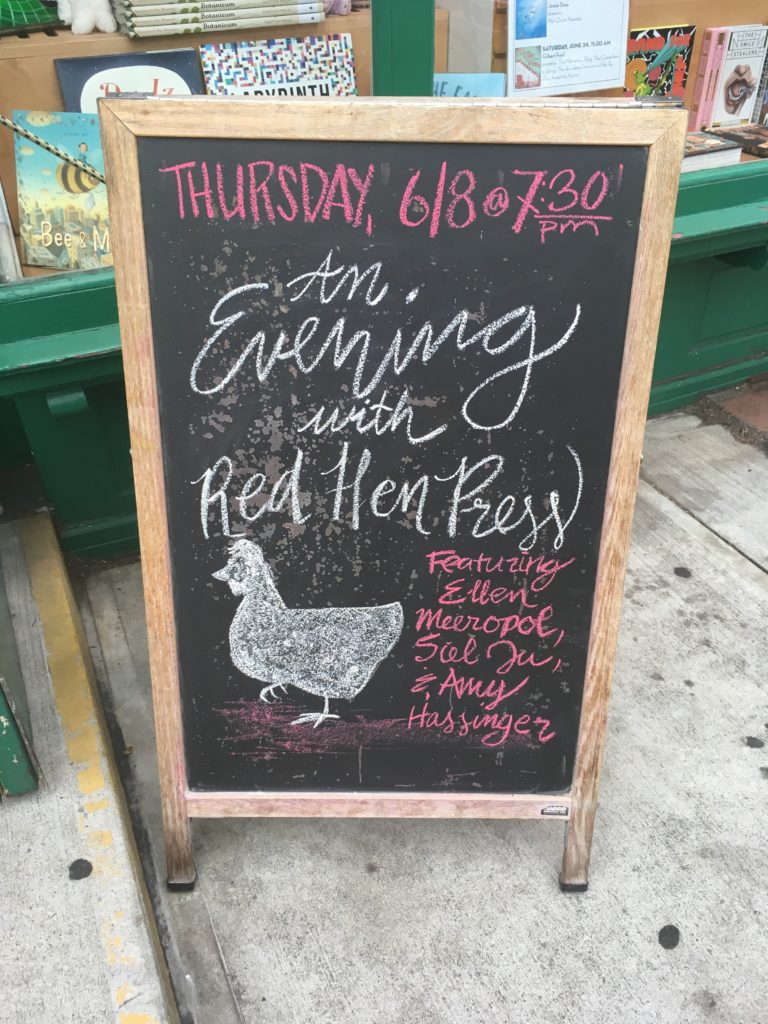 Botanicum
Botanicum
Botanicum
LABYRINTH
Bee & M
SATURDAY, JUNE 24, 11:30 AM
THE SMILE
STEALERS
THURSDAY, 6/8 @ 7:30 pm
An
Evening
with
Red Hen Press
Featuring
Ellen
Meeropol,
Siel Ju,
& Amy
Hassinger